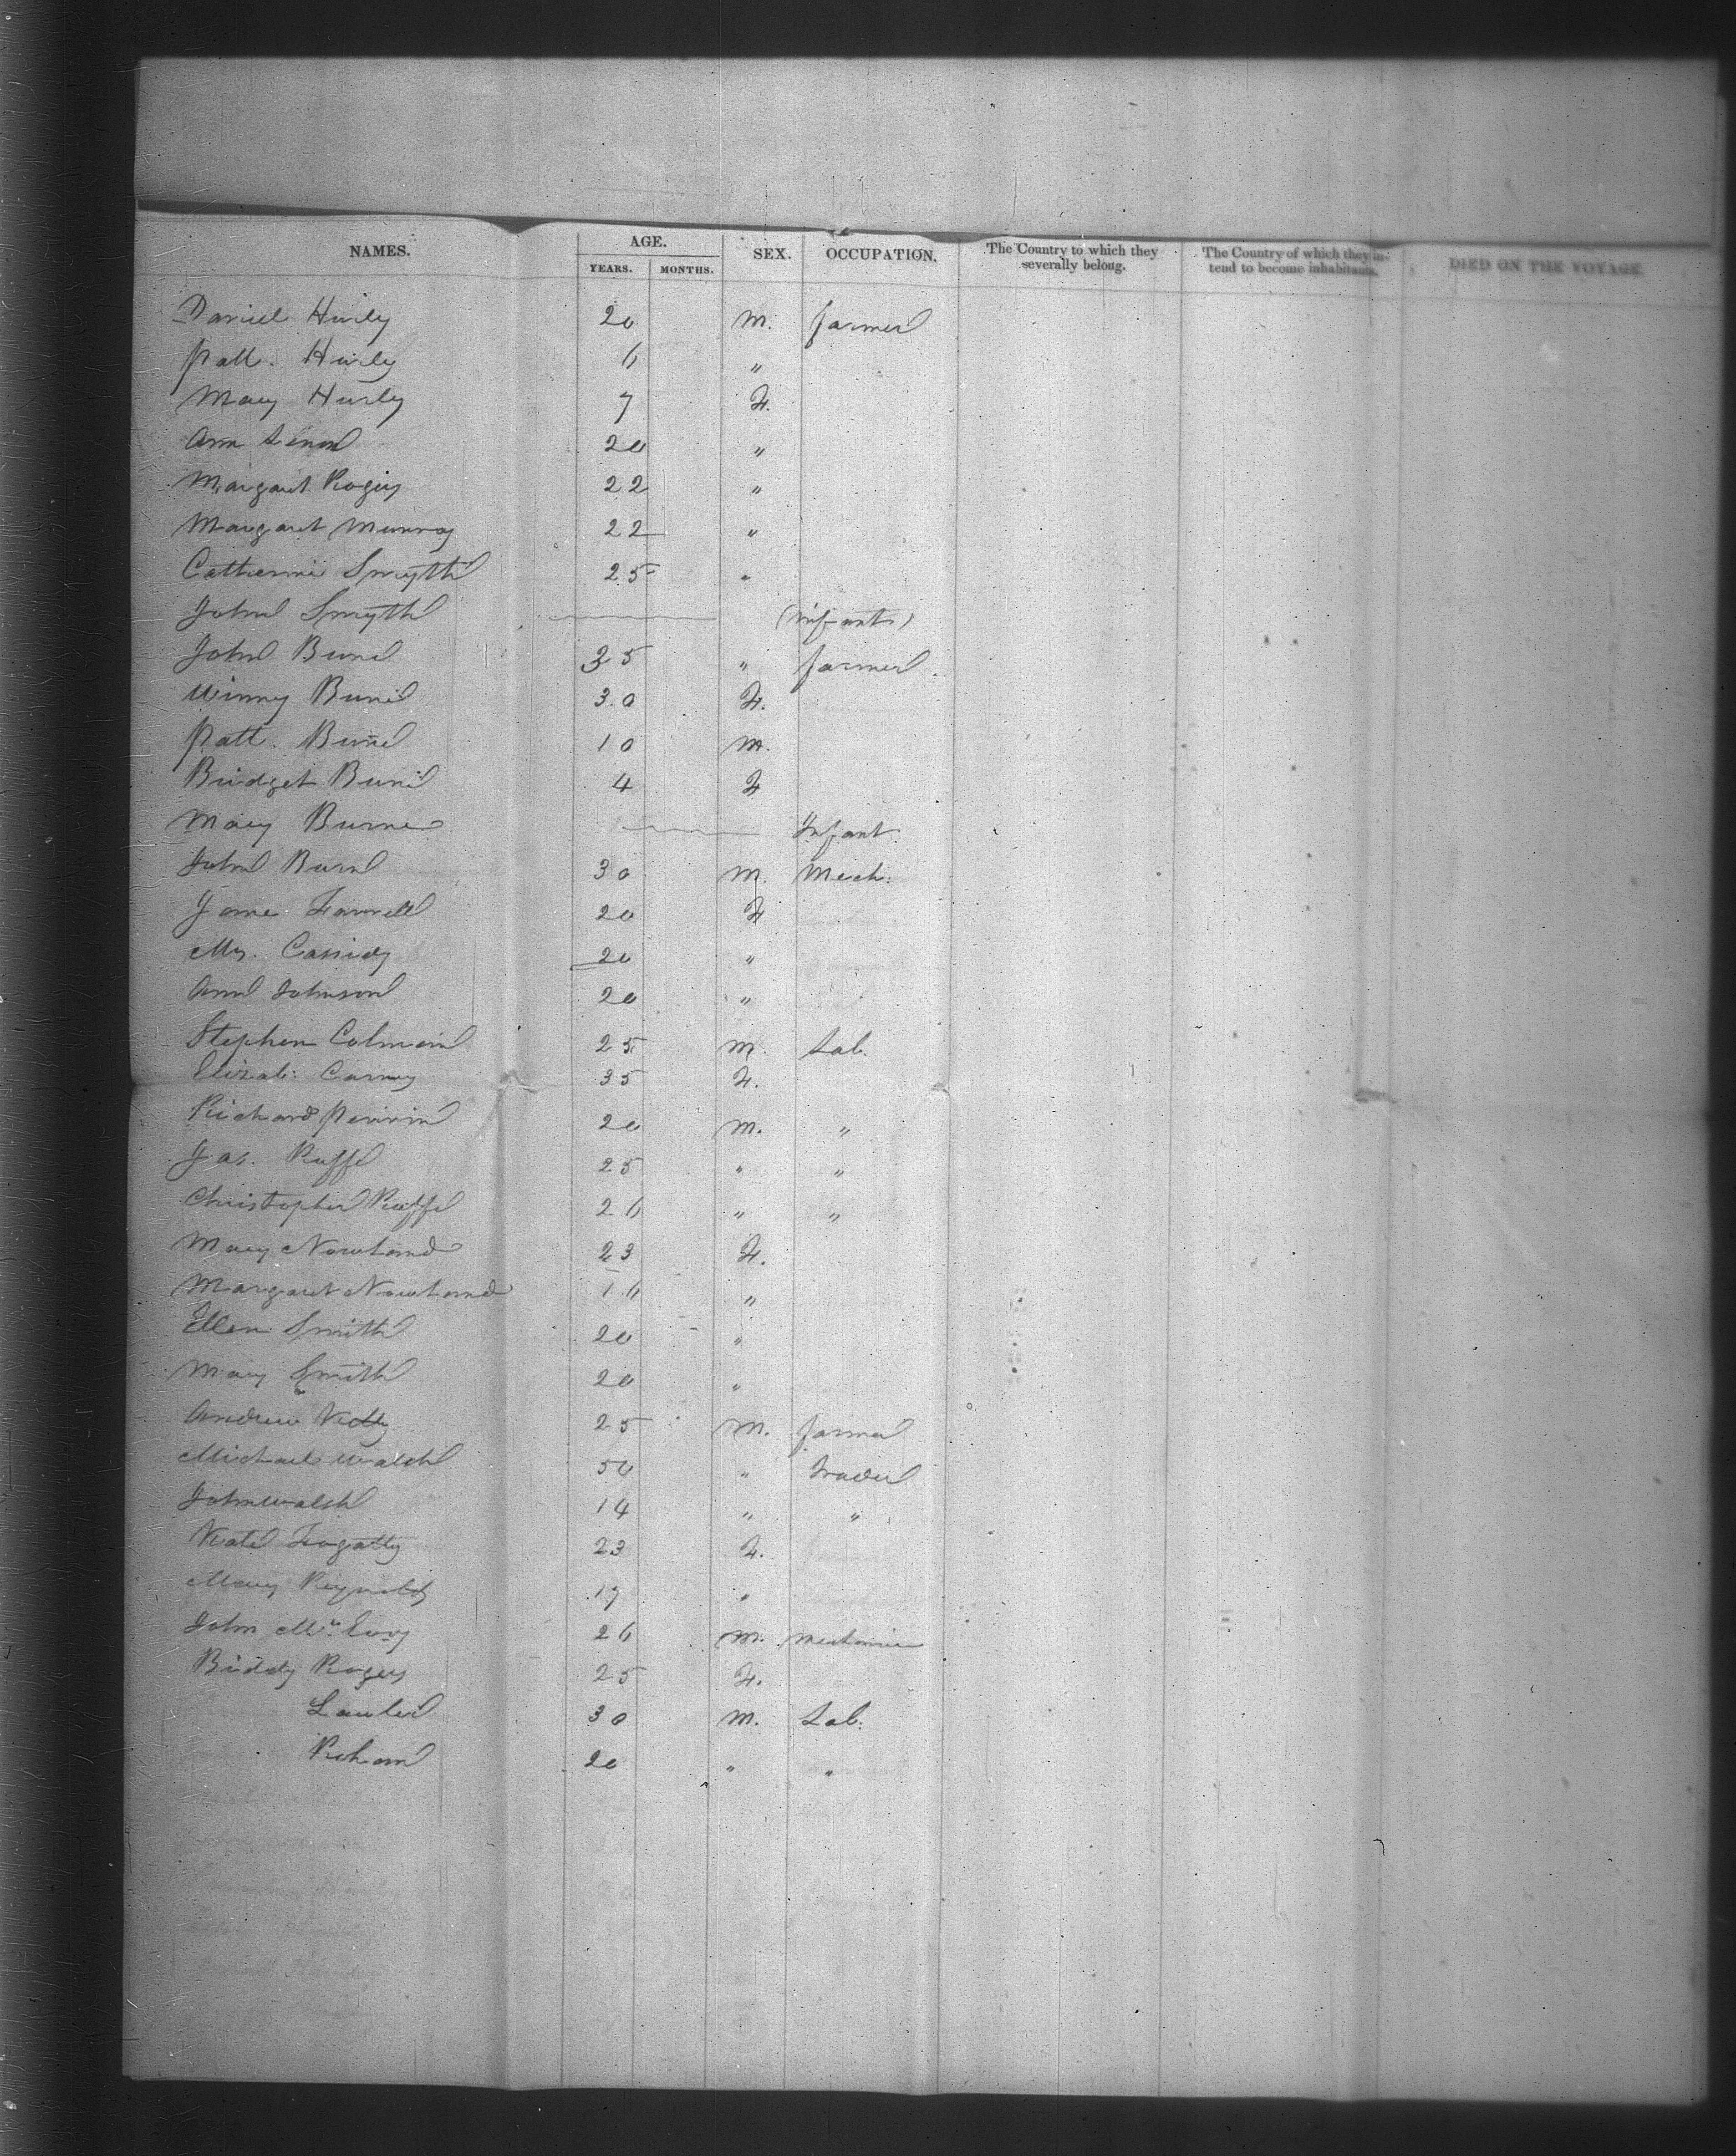 NAMES. AGE. SEX. OCCUPATION. The Country to which they severally belong. The Country of which they intend to become inhabitants. DIED ON THE VOYAGE.
YEARS. MONTHS.
Daniel Hurly 20 M. farmer
Patt. Hurly 6 "
Mary Hurly 7 F.
Ann 20 "
Margaret Rogers 22 "
Margaret Murray 22 "
Catherine Smyth 25 "
John Smyth (infant)
John Burne 35 " farmer
Winny Burne 30 F.
Patt. Burne 10 M.
Bridget Burne 4 F
Mary Burne Infant
John Burne 30 M. Mech.
Jane Farrell 20 F
Mrs. Cassidy 20 "
Ann Johnson 20 "
Stephen Colman 25 M. Lab.
Elizab: Carney 35 F.
Richard 20 M. "
Jas. 25 " "
Christopher 26 " "
Mary Newland 23 F.
Margaret Newland 16 "
Ellen Smith 20 "
Mary Smith 20 "
Andrew 25 M. farmer
Michael Walsh 50 " Trader
John Walsh 14 " "
Kate Fogatty 23 F.
Mary Reynolds 17 "
John McEvoy 26 M. Mechanic
Biddy Rogers 25 F.
Lawler 30 M. Lab.
20 " "